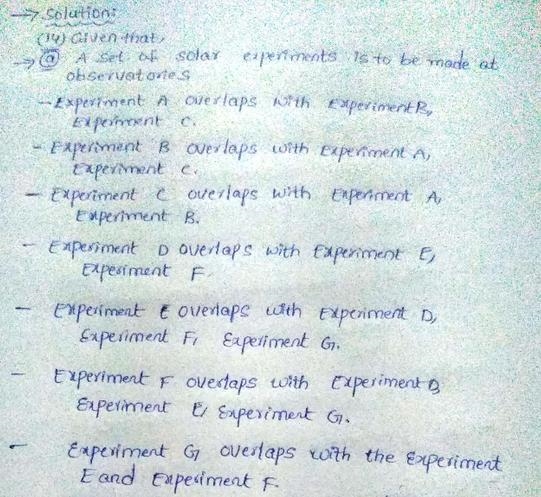 → Solution:
(14) Given that,
→ ⓐ A set of solar experiments is to be made at
observatories
- Experiment A overlaps with Experiment B,
Experiment C.
- Experiment B overlaps with Experiment A,
Experiment C.
- Experiment C overlaps with Experiment A,
Experiment B.
- Experiment D overlaps with Experiment E,
Experiment F.
- Experiment E overlaps with Experiment D,
Experiment F, Experiment G.
- Experiment F overlaps with Experiment D,
Experiment E, Experiment G.
- Experiment G overlaps with the Experiment
E and Experiment F.